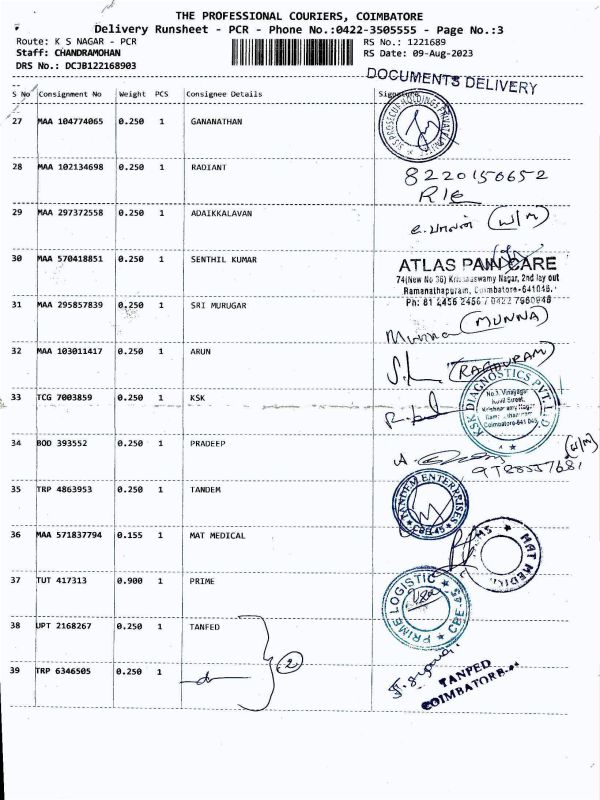 THE PROFESSIONAL COURIERS, COIMBATORE
Delivery Runsheet - PCR - Phone No.:0422-3505555 - Page No.:3
Route: K S NAGAR - PCR
RS No.: 1221689
Staff: CHANDRAMOHAN
RS Date: 09-Aug-2023
DRS No.: DCJB122168903
DOCUMENTS DELIVERY
S No Consignment No Weight PCS Consignee Details
27 MAA 104774065 0.250 1 GANANATHAN
28 MAA 102134698 0.250 1 RADIANT
8220150652
R/E
29 MAA 297372558 0.250 1 ADAIKKALAVAN
(W/M)
30 MAA 570418851 0.250 1 SENTHIL KUMAR
ATLAS PAIN CARE
74(New No 36) Krishnaswamy Nagar, 2nd lay out
Ramanathapuram, Coimbatore-641045.
Ph: 81 2456 2456 /
31 MAA 295857839 0.250 1 SRI MURUGAR
Munna (MUNNA)
32 MAA 103011417 0.250 1 ARUN
(RAGHURAM)
33 TCG 7003859 0.250 1 KSK
KSK DIAGNOSTICS PVT. LTD
34 BOD 393552 0.250 1 PRADEEP
(W/M)
35 TRP 4863953 0.250 1 TANDEM
TANDEM ENTERPRISES
CBE-45
36 MAA 571837794 0.155 1 MAT MEDICAL
MAT MEDICALS
37 TUT 417313 0.900 1 PRIME
PRIME LOGISTIC
CBE-45
38 UPT 2168267 0.250 1 TANFED
2
39 TRP 6346505 0.250 1
TANFED
COIMBATORE